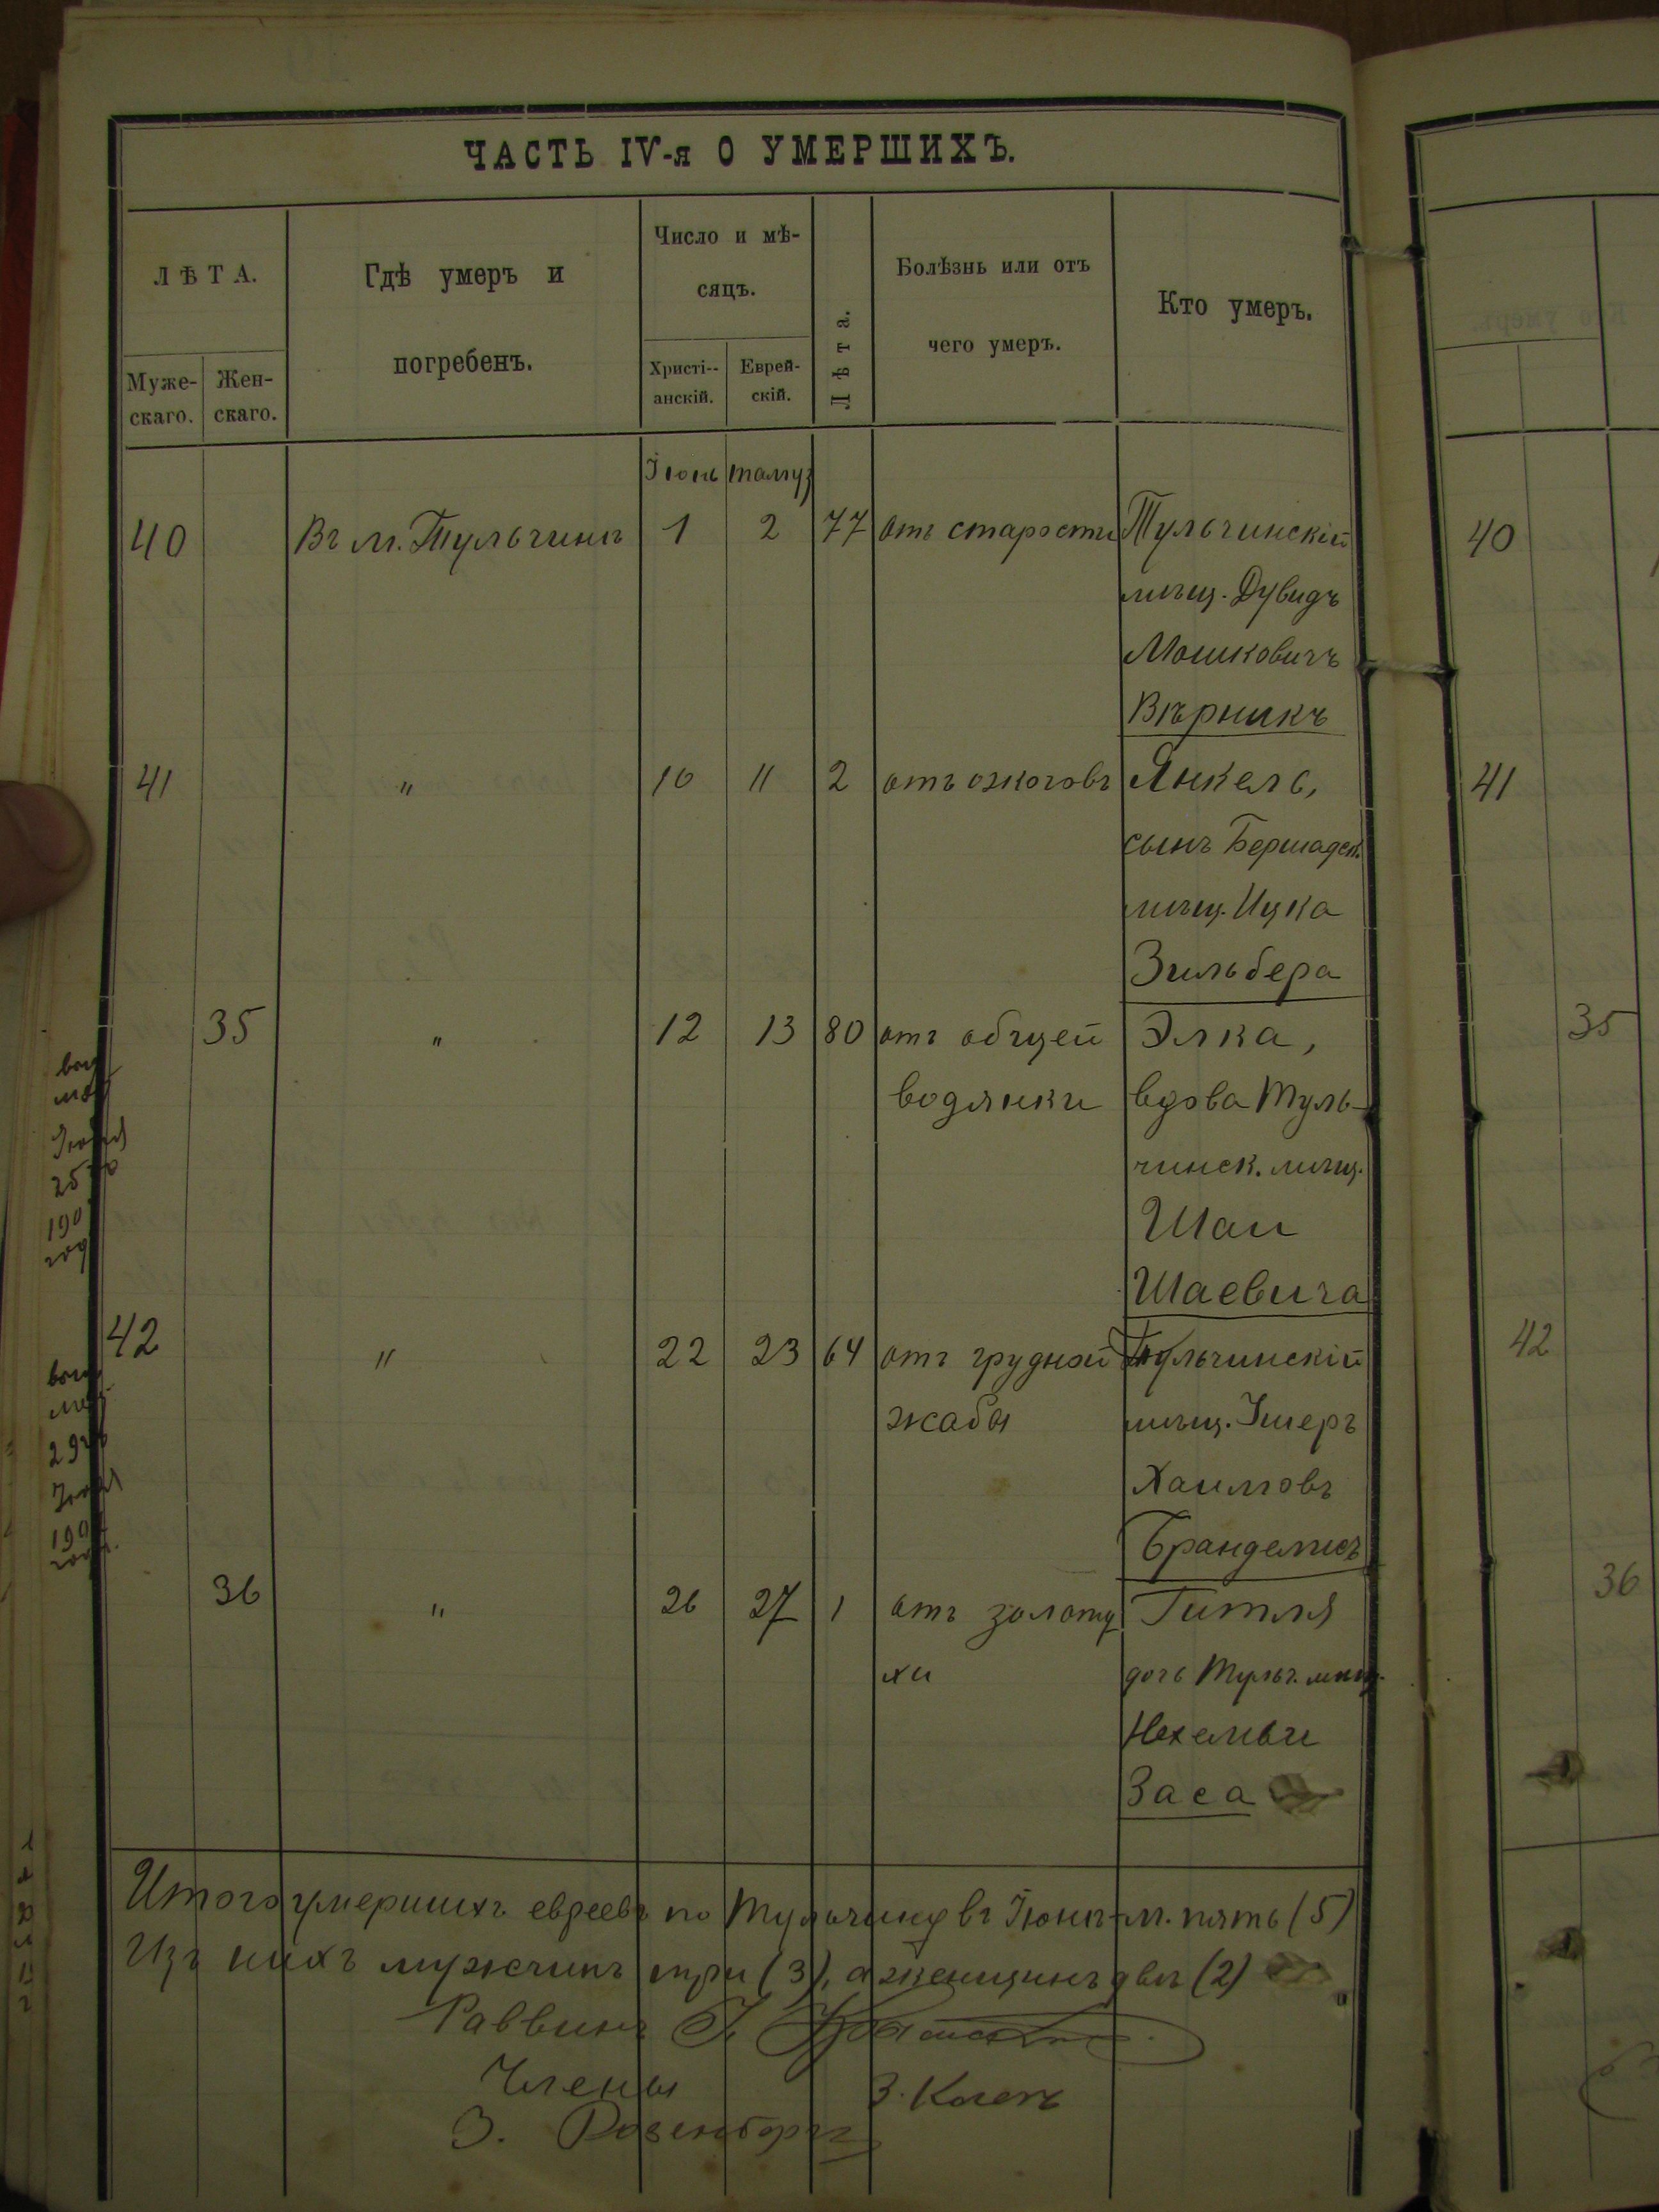 ЧАСТЬ IV-я О УМЕРШИХЪ.
ЛѢТА.
Муже-
скаго.
Жен-
скаго.
Гдѣ умеръ и
погребенъ.
Число и мѣ-
сяцъ.
Христі--
анскій.
Еврей-
скій.
Лѣта.
Болѣзнь или отъ
чего умеръ.
Кто умеръ.
Іюнь тамуз
40 Въ м. Тульчинѣ 1 2 77 отъ старости Тульчинскій
мѣщ. Дувидъ
Мошковичъ
Вѣрникъ
41 " 10 11 2 отъ ожоговъ Янкель,
сынъ Бершадск.
мѣщ. Ицка
Зильбера
35 " 12 13 80 отъ общей Элка,
водянки вдова Туль-
чинск. мѣщ.
Шаи
Шаевича
42 " 22 23 64 отъ грудной Тульчинскій
жабы мѣщ. Ушеръ
Хаимовъ
Бранделисъ
36 " 26 27 1 отъ золоту Гитля
хи дочь Тульч. мѣщ.
Нехемьи
Заса
Итого умершихъ евреевъ по Тульчину въ Іюнѣ-м. пять (5)
Изъ нихъ мужчинъ три (3), а женщинъ двѣ (2)
Раввинъ
Члены З. Коганъ
З. Розенбергъ
40
41
35
42
36